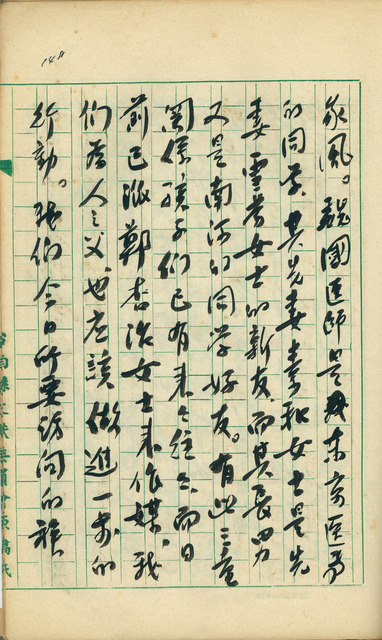 148
家風。魏國医師是我東京医專
的同學、其先妻素和女士是先
妻雪芬女士的新友、而其長男
又是南河的同学好友。有此三重
関係、孩子們已有来来往往、而日
前已派鄭杏治女士来作媒。我
們為人之父、也应該做進一步的
行動。我們今日所要訪問的